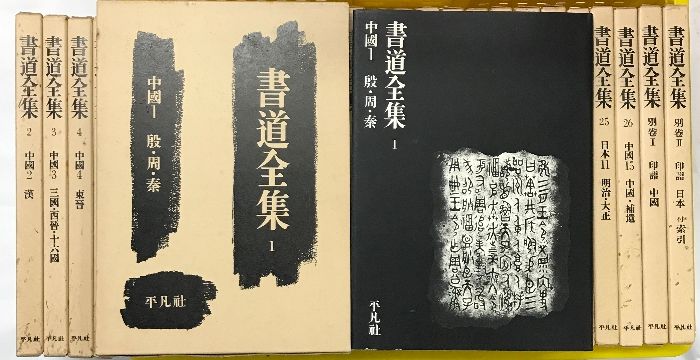 書道全集
2
中國2
漢
平凡社
書道全集
3
中國3
三國・西晉・十六國
平凡社
書道全集
4
中國4
東晉
平凡社
書道全集 1
中國1 殷・周・秦
平凡社
書道全集 1
中國1 殷・周・秦
平凡社
書道全集
25
日本11
明治・大正
平凡社
書道全集
26
中國15
中國・補遺
平凡社
書道全集
別卷I
印譜
中國
平凡社
書道全集
別卷II
印譜
日本
付索引
平凡社